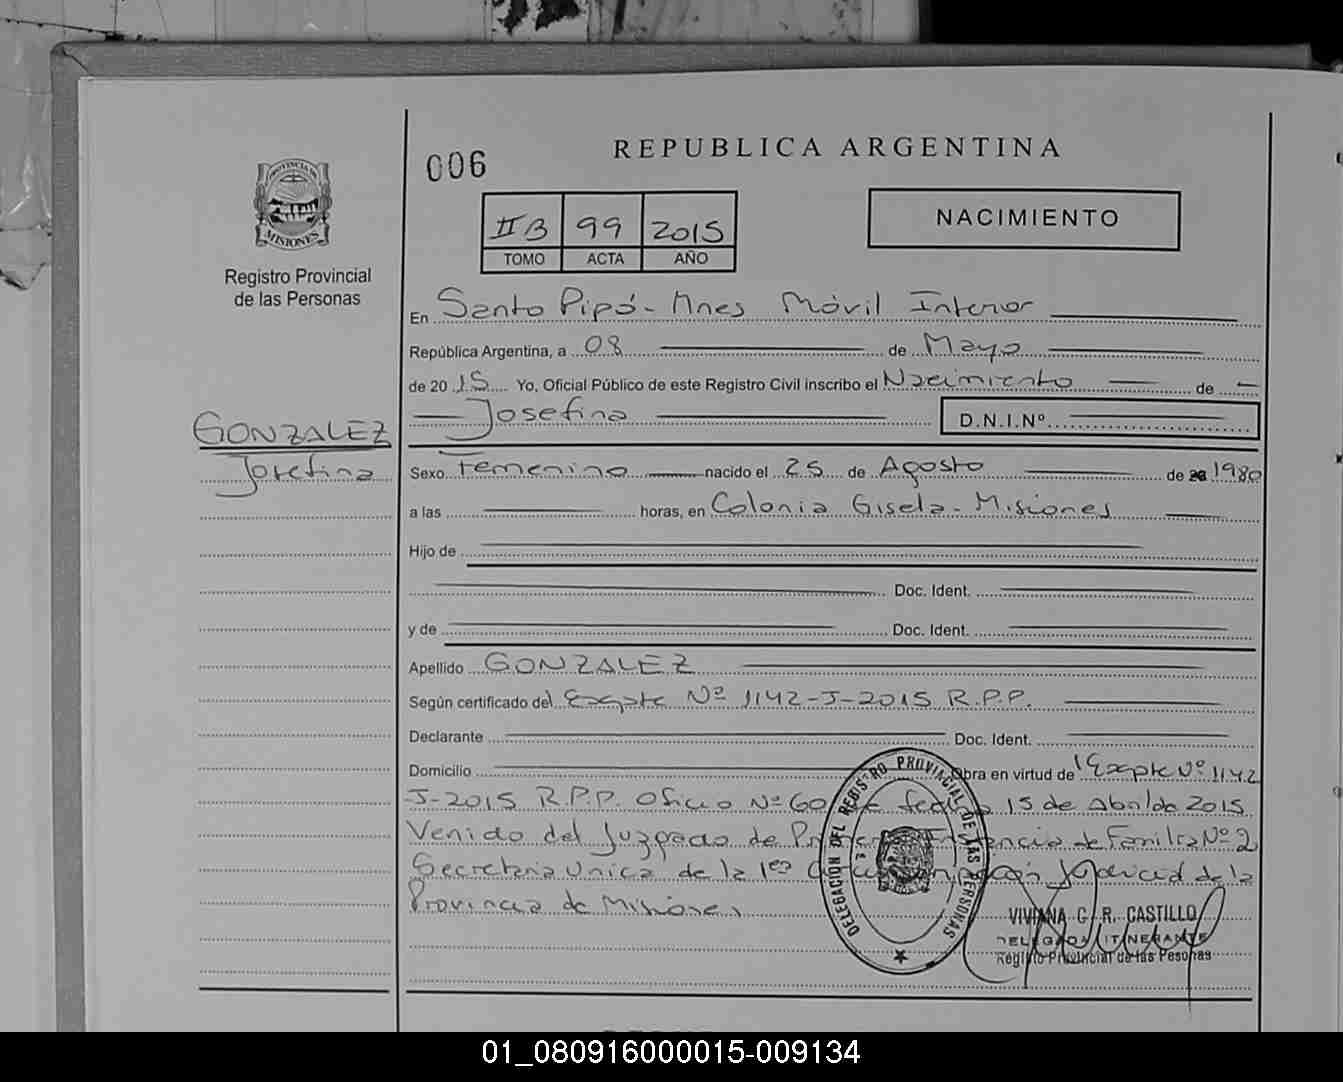 006
REPUBLICA ARGENTINA
PROVINCIA DE
MISIONES
Registro Provincial
de las Personas
II B 99 2015
TOMO ACTA AÑO
NACIMIENTO
En Santo Pipó - Mnes Móvil Interior
República Argentina, a 08 de Mayo
de 2015 Yo, Oficial Público de este Registro Civil inscribo el Nacimiento de
Josefina D.N.I.Nº
GONZALEZ
Josefina
Sexo Femenino nacido el 25 de Agosto de 20 1980
a las horas, en Colonia Gisela - Misiones
Hijo de
Doc. Ident.
y de Doc. Ident.
Apellido GONZALEZ
Según certificado del Expte Nº 1142-J-2015 R.P.P.
Declarante Doc. Ident.
Domicilio Obra en virtud de Expte Nº 1142
J-2015 R.P.P. Oficio Nº 60 de fecha 15 de Abril de 2015
Venido del Juzgado de Primera Instancia de Familia Nº 2
Secretaria Unica de la 1ra Circunscripción Judicial de la
Provincia de Misiones
DELEGACION DEL REGISTRO PROVINCIAL DE LAS PERSONAS
VIVIANA G. R. CASTILLO
DELEGADA ITINERANTE
Registro Provincial de las Pesonas
01_080916000015-009134